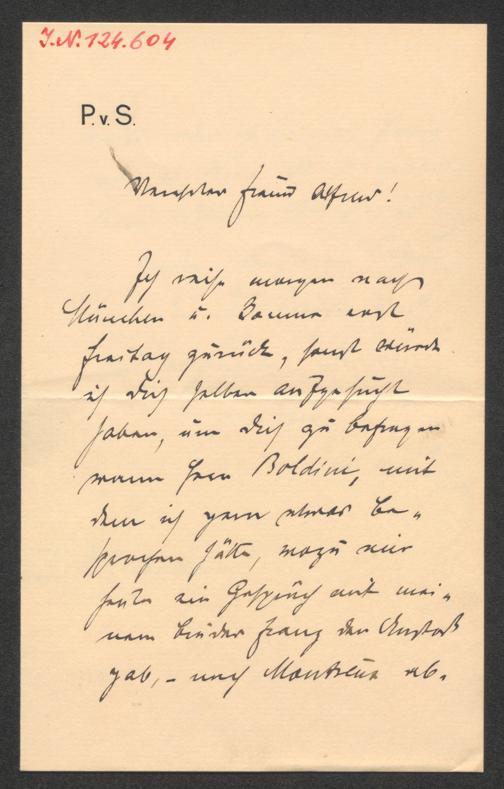 I.N. 124.604
P. v. S.
Verehrter Freund Alfred!
Ich reise morgen nach
München u. komme erst
Freitag zurück, sonst würde
ich Dich selber aufgesucht
haben, um Dich zu befragen
wann Herr Boldini, mit
dem ich gern etwas be-
sprochen hätte, wozu mir
heute ein Gespräch mit mei-
nem Bruder Franz den Anstoß
gab, – nach Montreux ab-